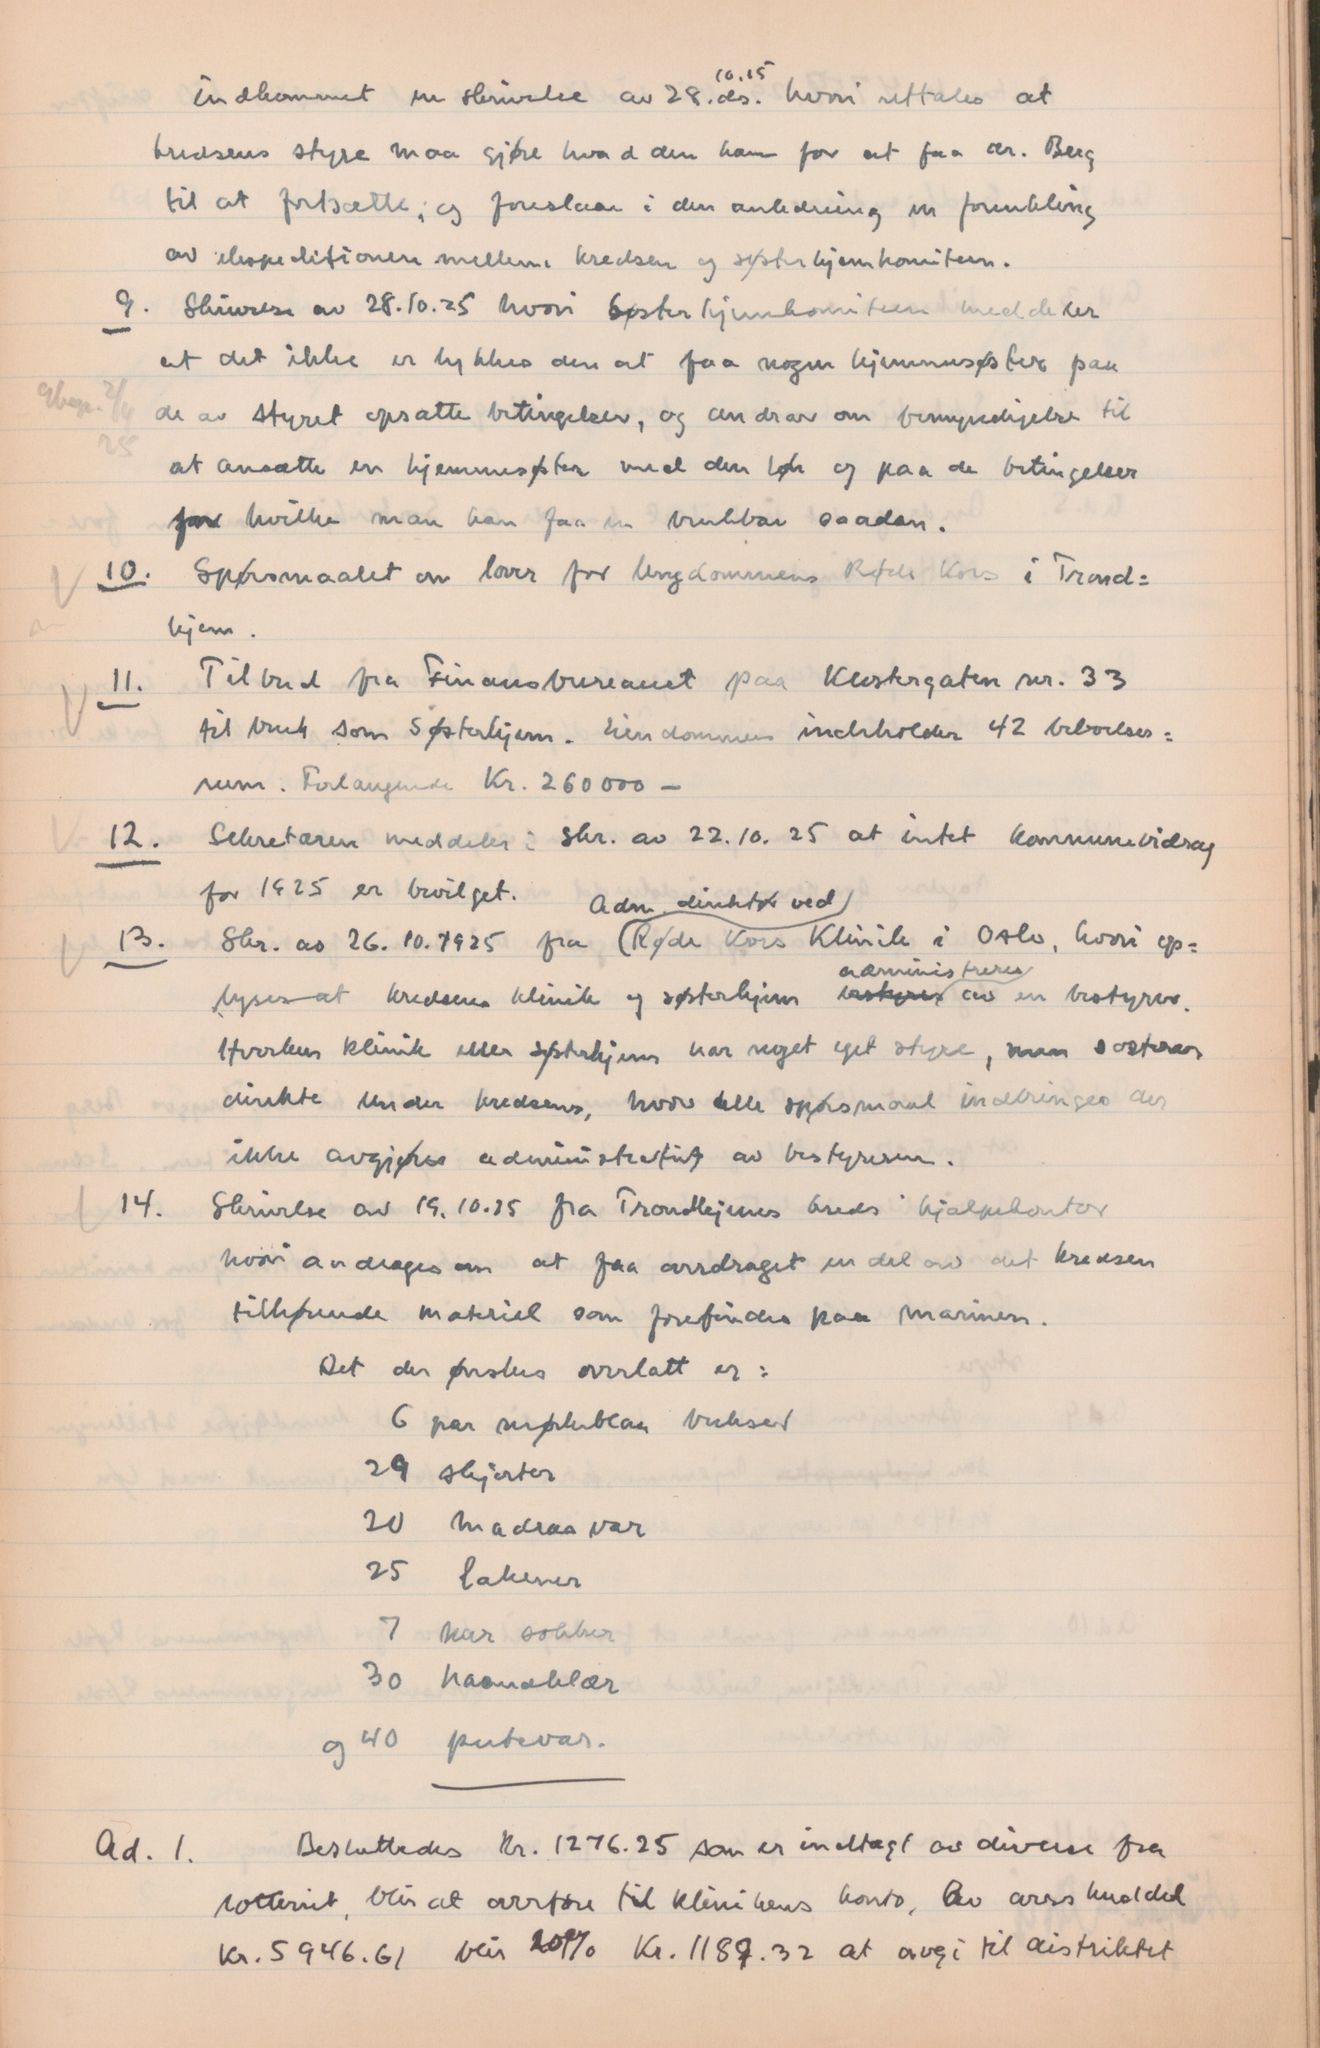 indkommet en skrivelse av 28. ds. 10.25 hvori uttales at
kredsens styre maa gjøre hvad den kan for at faa dr. Berg
til at fortsætte, og foreslaar i den anledning en forenkling
av ekspeditionen mellem kredsen og søsterhjemkomiteen.
9. Skrivelse av 28.10.25 hvori Søsterhjemkomiteen meddeler
at det ikke er lykkes den at faa nogen hjemmesøster paa
de av styret opsatte betingelser, og andrar om bemyndigelse til
at ansætte en hjemmesøster med den løn og paa de betingelser
for hvilke man kan faa en brukbar saadan.
10. Spørsmaalet om lover for Ungdommens Røde Kors i Trond=
hjem.
11. Tilbud fra Finansbureauet paa Klostergaten nr. 33
til bruk som Søsterhjem. Eiendommen indeholder 42 beboelses=
rum. Forlangende Kr. 260000 –
12. Sekretæren meddeler i skr. av 22.10.25 at intet kommunebidrag
for 1925 er bevilget.
Adm. direktør ved
13. Skr. av 26.10.1925 fra (Røde Kors Klinik i Oslo, hvori op=
administreres
lyses at kredsens klinik og søsterhjem bestyres av en bestyrer.
Hverken klinik eller søsterhjem har noget eget styre, men sorterer
direkte under kredsens, hvor alle spørsmaal indbringes der
ikke avgjøres administrativt av bestyreren.
14. Skrivelse av 19.10.25 fra Trondhjems kreds' hjælpekontor
hvori andrages om at faa overdraget en del av det kredsen
tilhørende materiel som forefindes paa marinen.
Det der ønskes overlatt er:
6 par mørkeblaa bukser
29 skjorter
20 madrasvar
25 Lakener
7 par sokker
30 haandklær
og 40 putevar.
Ad. 1. Besluttedes Kr. 1276.25 som er indtægt av diverse fra
lotteriet, blir at overføre til klinikens konto, av overskuddet
Kr. 5946.61 blir 20% Kr. 1189.32 at avgi til distriktet